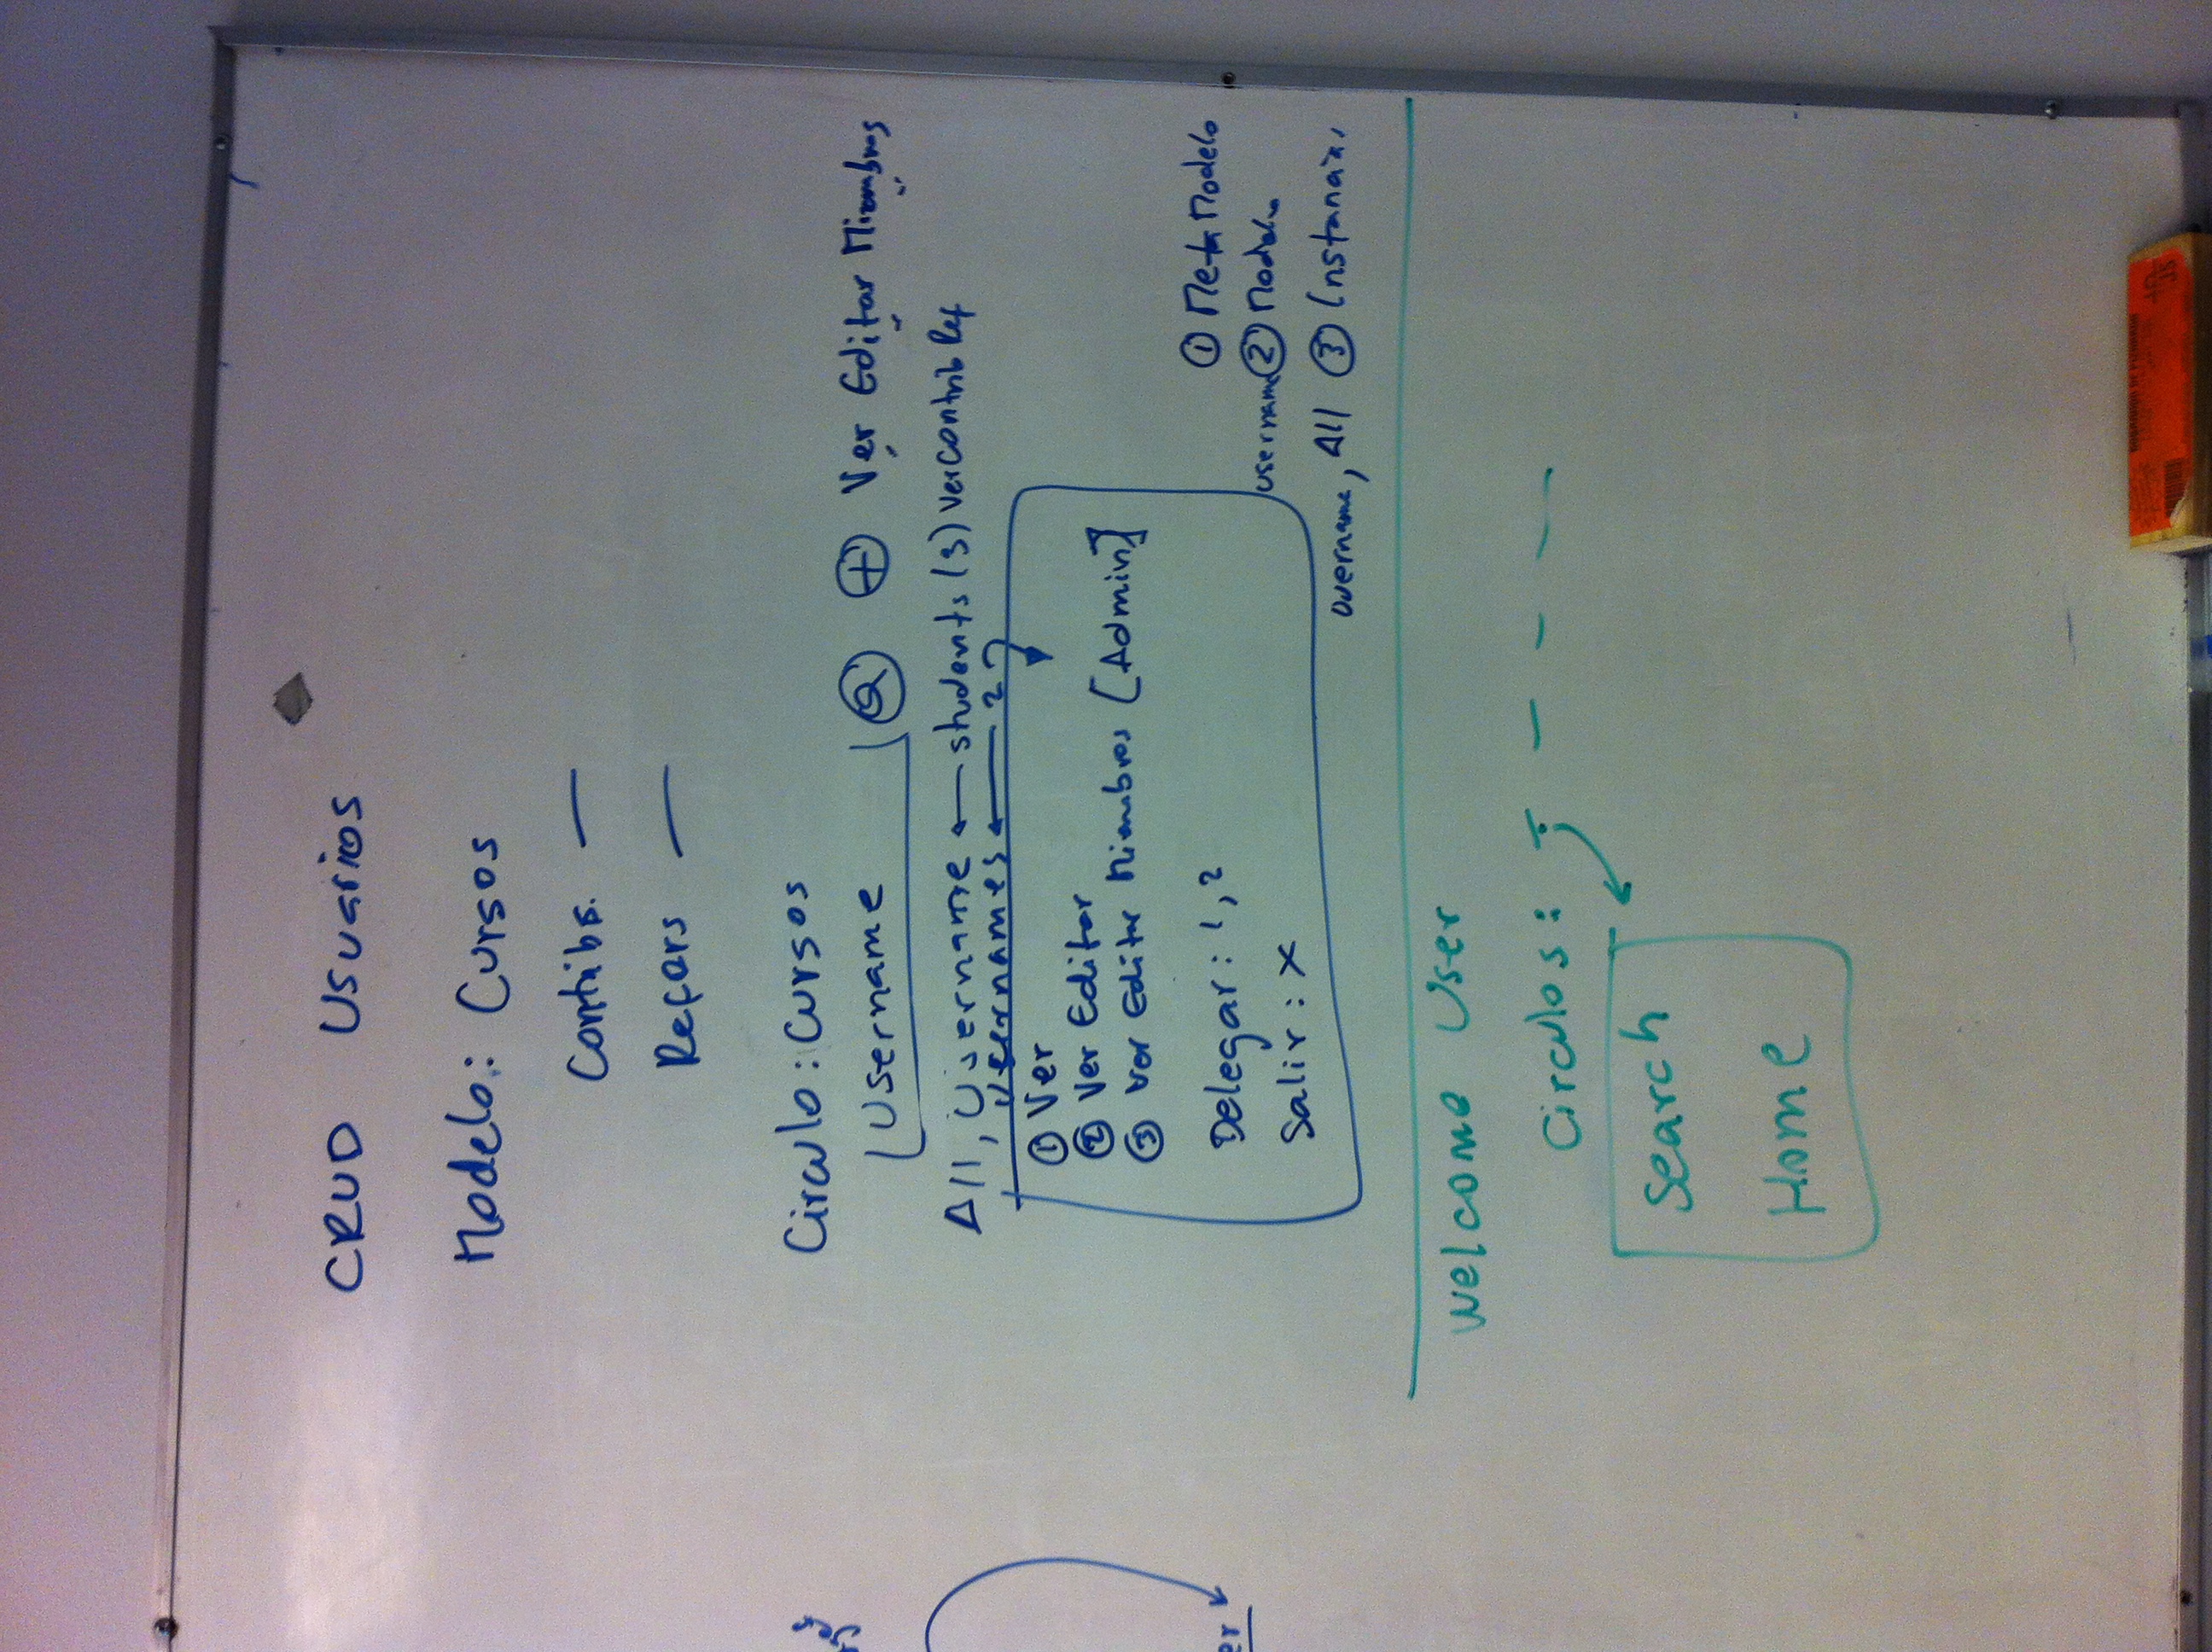 CRUD Usuarios
Modelo: Cursos
Contribs. —
Refers —
Circulo: Cursos
Username + Ver Editar Miembros
All, Username ← students (3) Ver Contrib Ref
usernames ← 2
① Ver
② Ver Editar
③ Ver Editar Miembros [Admin]
Delegar: 1, 2
Salir: X
① Meta Modelo
username ② Modelo
username, All ③ Instancias
Welcome User
Circulos: — — — —
Search
Home
BORRADOR DE PIZARRON